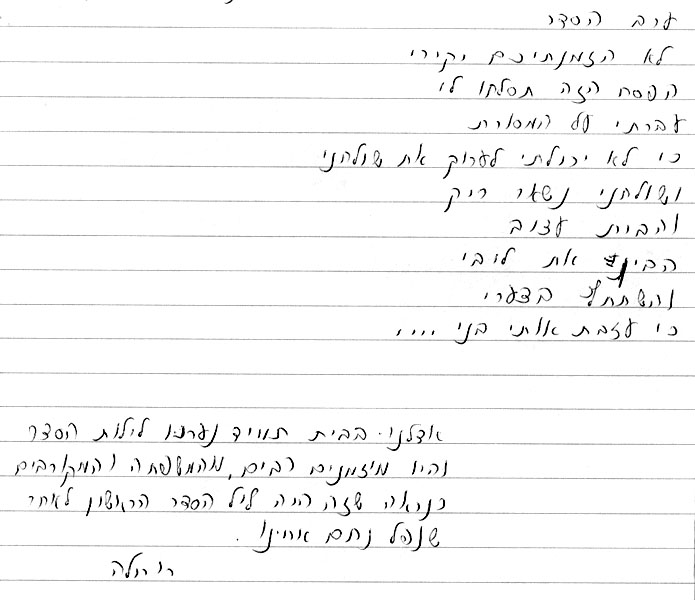 ערב הסדר
לא הזמנתיכם יקירי
הפסח הזה תסלחו לי
עברתי על המסורת
כי לא יכולתי לערוך את שולחני
ושולחני נשאר ריק
והבית עצוב
הבינו את ליבי
והשתתפו בצערי
כי עזבת אותי בני ....
אצלנו בבית תמיד נערכו לילות הסדר
והיו מוזמנים רבים, מהמשפחה והמקורבים
כנראה שזה היה ליל הסדר הראשון לאחר
שנפל נחם אחינו .
רוחלה